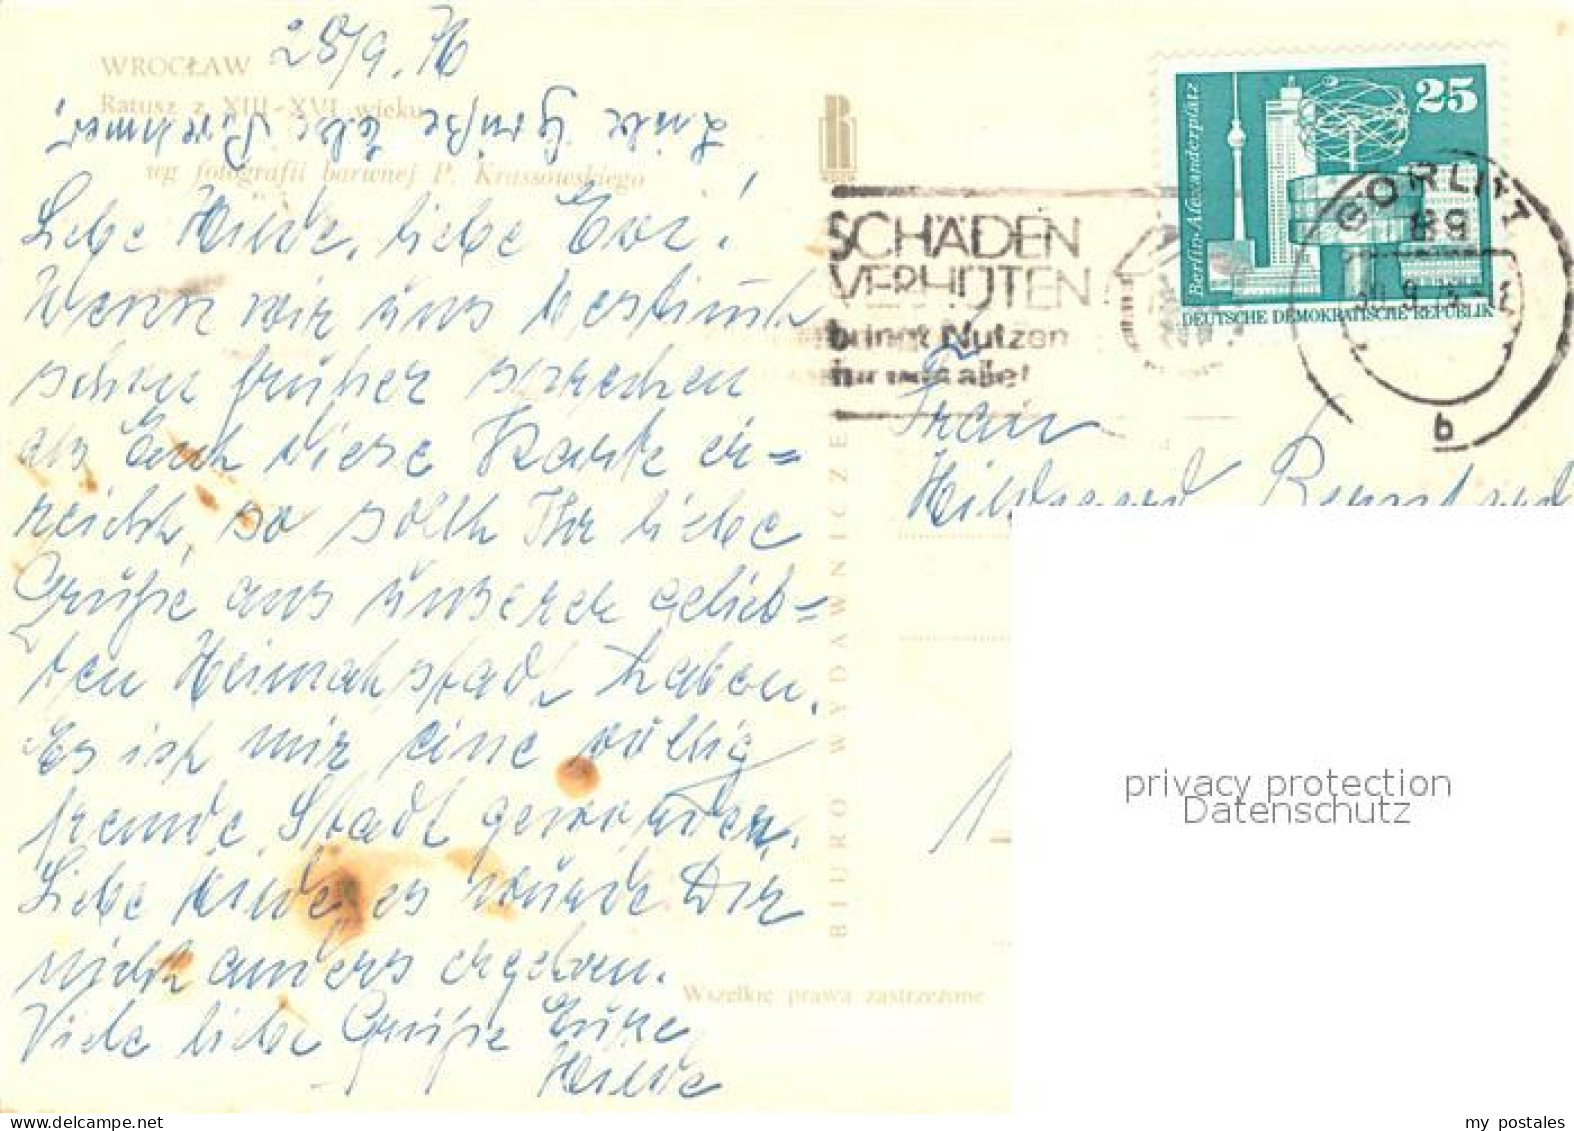 28/9.76
WROCŁAW
Ratusz z XIII-XVI wieku
wg fotografii barwnej P. Krassowskiego
Liebe Grüße
Liebe Hilde, liebe Evi!
Wenn wir uns bestimmt
schon früher sprechen
als Euch diese Karte er=
reicht, so sollt Ihr liebe
Grüße aus unserer gelieb=
ten Heimatstadt haben.
Es ist mir eine völlig
fremde Stadt geworden.
Liebe Hilde es würde Dir
nicht anders ergehen.
Viele liebe Grüße Eure
Hilde
BIURO WYDAWNICZE
Wszelkie prawa zastrzeżone
SCHÄDEN
VERHÜTEN
bringt Nutzen
für uns alle!
25
Berlin-Alexanderplatz
DEUTSCHE DEMOKRATISCHE REPUBLIK
GÖRLITZ
89
b
Frau
Hildegard
1
privacy protection
Datenschutz
www.ansichtskartenversand.com
my postales